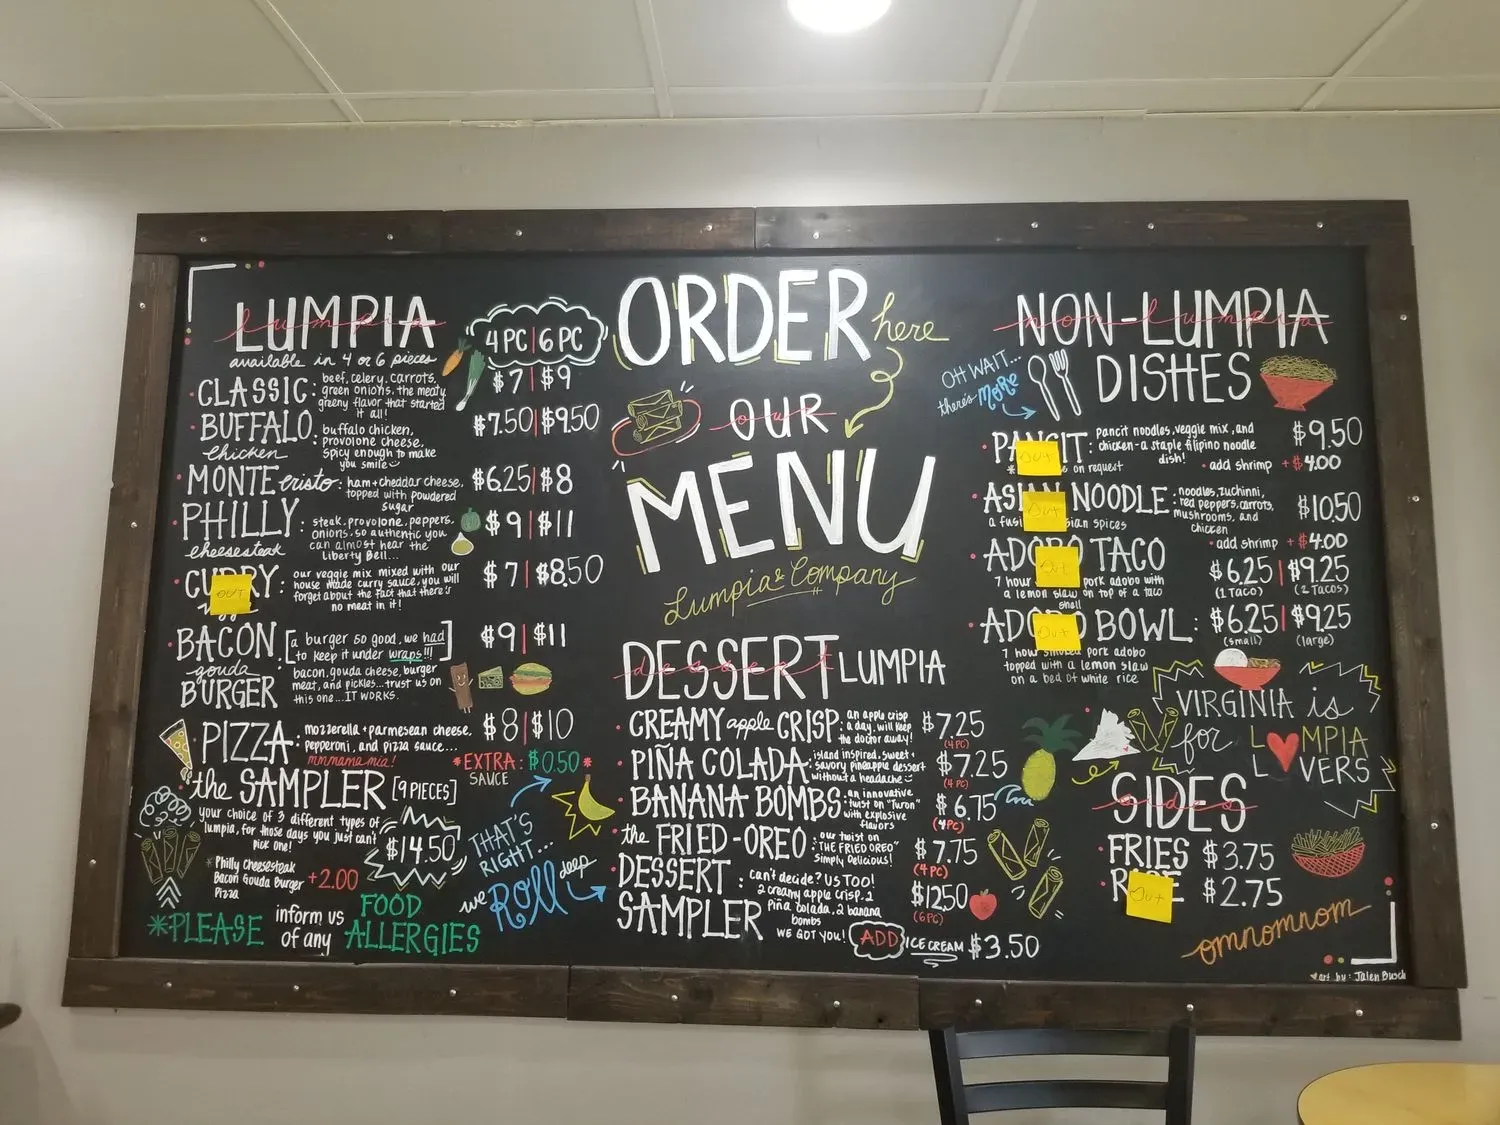 LUMPIA
available in 4 or 6 pieces
4 PC | 6 PC
CLASSIC: beef, celery, carrots,
green onions. the meaty,
greeny flavor that started
it all!
$7 | $9
BUFFALO
chicken
: buffalo chicken,
provolone cheese,
spicy enough to make
you smile
$7.50 | $9.50
MONTE cristo: ham + cheddar cheese,
topped with powdered
sugar
$6.25 | $8
PHILLY
cheesesteak
: steak, provolone, peppers,
onions, so authentic you
can almost hear the
Liberty Bell...
$9 | $11
CURRY:
OUT
our veggie mix mixed with our
house made curry sauce, you will
forget about the fact that there's
no meat in it!
$7 | $8.50
BACON
gouda
BURGER
[a burger so good, we had
to keep it under wraps!!!]
bacon, gouda cheese, burger
meat, and pickles... trust us on
this one... IT WORKS.
$9 | $11
PIZZA: mozzerella + parmesean cheese,
pepperoni, and pizza sauce...
mmmama mia!
$8 | $10
*EXTRA: $0.50*
SAUCE
the SAMPLER [9 PIECES]
your choice of 3 different types of
lumpia, for those days you just can't
pick one!
$14.50
* Philly Cheesesteak
Bacon Gouda Burger
Pizza
+2.00
*PLEASE inform us
of any FOOD
ALLERGIES
THAT'S
RIGHT...
we ROLL deep
ORDER here
OUR
MENU
Lumpia & Company
DESSERT LUMPIA
CREAMY apple CRISP: an apple crisp
a day, will keep
the doctor away!
$7.25
(4 PC)
PIÑA COLADA: island inspired, sweet +
savory pineapple dessert
without a headache
$7.25
(4 PC)
BANANA BOMBS: an innovative
twist on "Turon"
with explosive
flavors
$6.75
(4 PC)
the FRIED-OREO: our twist on
"THE FRIED OREO"
Simply Delicious!
$7.75
(4 PC)
DESSERT
SAMPLER
: can't decide? US TOO!
2 creamy apple crisp, 2
Piña Colada, 2 banana
bombs
WE GOT YOU!
$12.50
(6 PC)
ADD ICE CREAM $3.50
NON-LUMPIA
DISHES
OH WAIT...
there's MORE
PANCIT: pancit noodles, veggie mix, and
chicken - a staple filipino noodle
dish!
Out
on request
$9.50
• add shrimp + $4.00
ASIAN NOODLE: noodles, zuchinni,
red peppers, carrots,
mushrooms, and
chicken
Out
$10.50
• add shrimp + $4.00
ADOBO TACO
Out
7 hour pork adobo with
a lemon slaw on top of a taco
shell
$6.25 | $9.25
(1 TACO) (2 TACOS)
ADOBO BOWL:
Out
7 hour smoked pork adobo
topped with a lemon slaw
on a bed of white rice
$6.25 | $9.25
(small) (large)
VIRGINIA is
for L MPIA
L VERS
SIDES
FRIES $3.75
RICE $2.75
Out
omnomnom
art by: Jalen Busch